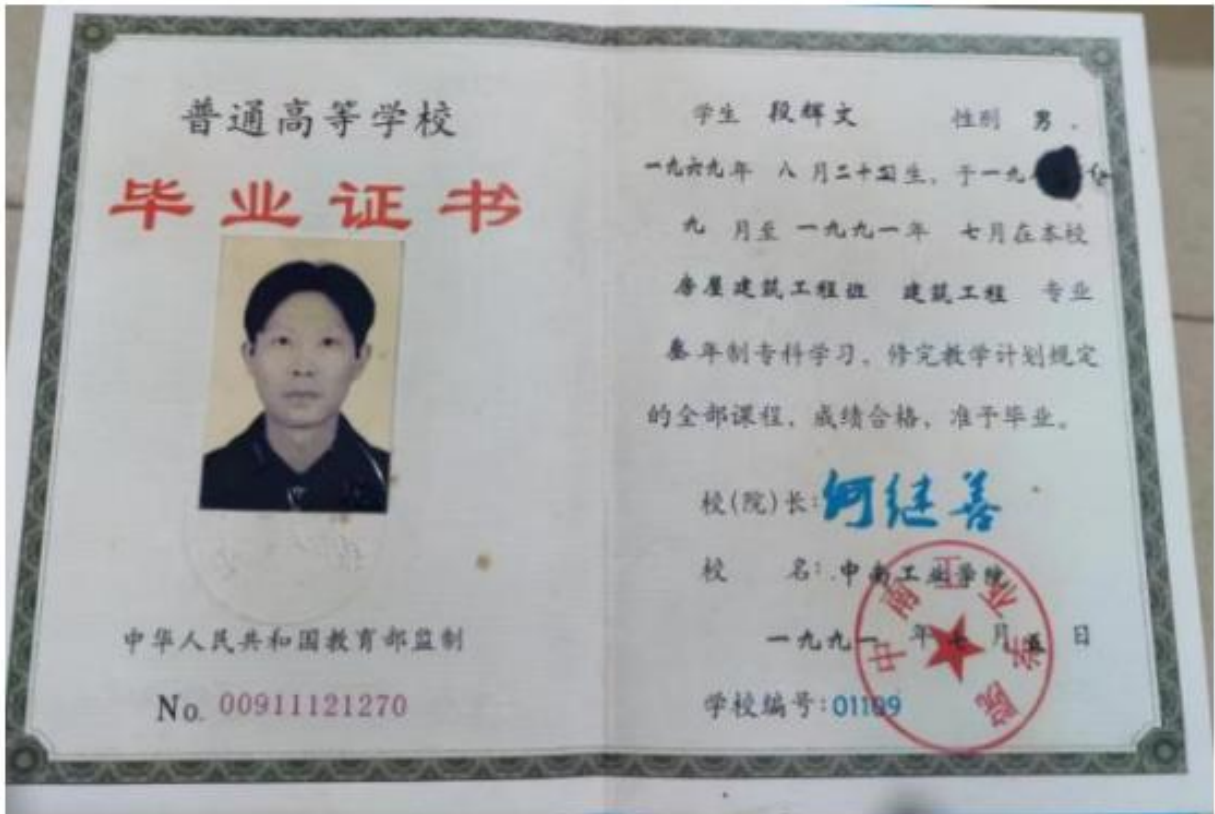 普通高等学校
毕业证书
中华人民共和国教育部监制
No. 00911121270
学生 段辉文 性别 男
一九六九年 八月二十 生,于一九
九 月至 一九九一年 七月在本校
房屋建筑工程班 建筑工程 专业
叁年制专科学习,修完教学计划规定
的全部课程,成绩合格,准予毕业。
校(院)长:何继善
校 名:中南工业学院
一九九一 年 七 月 五 日
学校编号:01109
中南工业学院